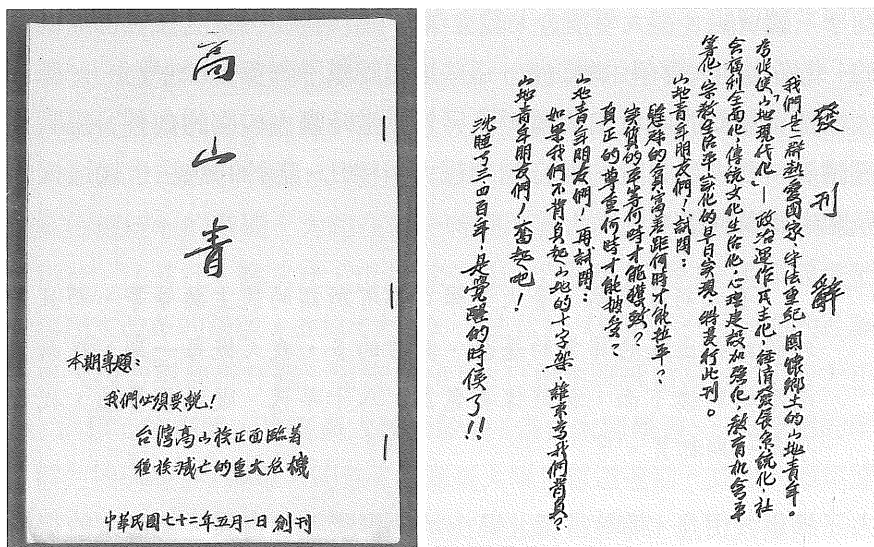 高山青
本期專題：
我們必須要說！
台灣高山族正面臨著
種族滅亡的重大危機
中華民國七十二年五月一日創刊
發刊辭
我們是一群熱愛國家、守法重紀、關懷鄉土的山地青年。
為促使「山地現代化」—政治運作民主化，經濟發展系統化，社
會福利全面化，傳統文化生活化，心理建設加強化，教育機會平
等化，宗教生活平實化的早日實現，特發行此刊。
山地青年朋友們！試問：
懸殊的貧富差距何時才能拉平？
實質的平等何時才能獲致？
真正的尊重何時才能接受？
山地青年朋友們！再試問：
如果我們不背負起山地的十字架，誰來為我們背負？
山地青年朋友們！奮起吧！
沈睡了三四百年，是覺醒的時候了！！